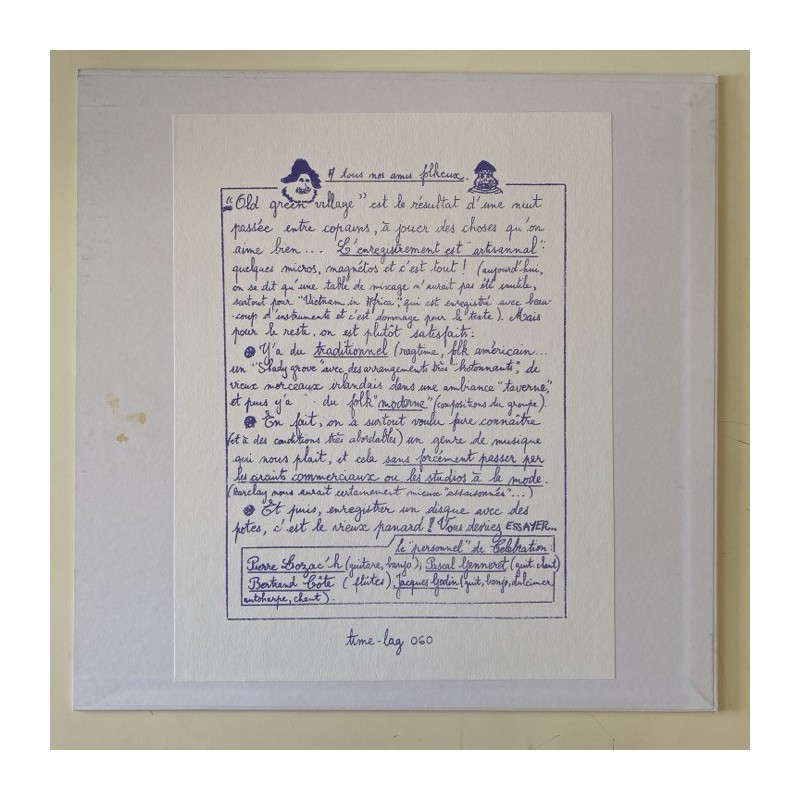 A tous nos amis folkeux.
"Old green village" est le résultat d'une nuit
passée entre copains, à jouer des choses qu'on
aime bien... L'enregistrement est "artisannal":
quelques micros, magnétos et c'est tout! (aujourd'hui,
on se dit qu'une table de mixage n'aurait pas été inutile,
surtout pour "Vietnam in Africa", qui est enregistré avec beau-
coup d'instruments et c'est dommage pour le texte). Mais
pour le reste, on est plutôt satisfaits:
Y'a du traditionnel (ragtime, folk américain...
un "Shady grove" avec des arrangements très "hetonnants", de
vieux morceaux irlandais dans une ambiance "taverne",
et puis y'a du folk "moderne" (compositions du groupe).
En fait, on a surtout voulu faire connaître
(et à des conditions très abordables) un genre de musique
qui nous plait, et cela sans forcément passer par
les circuits commerciaux ou les studios à la mode.
(Barclay nous aurait certainement mieux "assaisonnés"...)
Et puis, enregistrer un disque avec des
potes, c'est le vieux panard! Vous devriez ESSAYER...
Le "personnel" de Celebration:
Pierre Lozac'h (guitare, banjo); Pascal Genneret (guit. chant)
Bertrand Côte (flûtes), Jacques Godin (guit, banjo, dulcimer,
autoharpe, chant).
time-lag 060